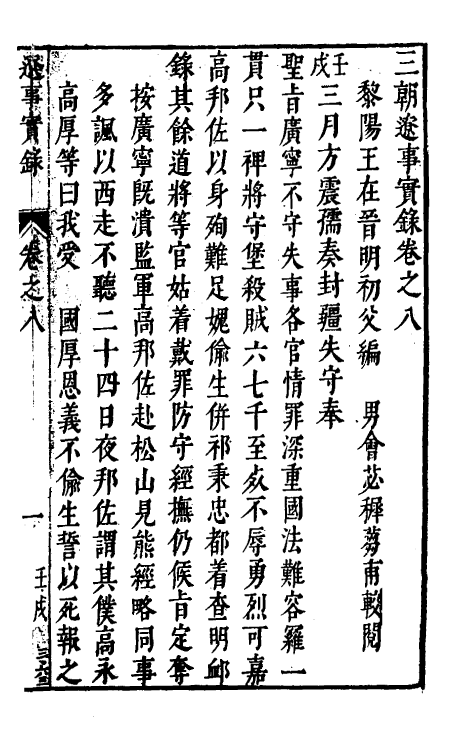 三朝遼事實錄卷之八
黎陽王在晉明初父編　男會苾穉蒭甫較閱
壬戌三月方震孺奏封疆失守奉
聖旨廣寧不守失事各官情罪深重國法難容羅一
貫只一裨將守堡殺賊六七千至死不辱勇烈可嘉
高邦佐以身殉難足媿偷生併祁秉忠都着查明卹
錄其餘道將等官姑着戴罪防守經撫仍候旨定奪
按廣寧既潰監軍高邦佐赴松山見熊經略同事
多諷以西走不聽二十四日夜邦佐謂其僕高永
高厚等曰我受　國厚恩義不偷生誓以死報之
遼事實錄　卷之八　一　壬戌